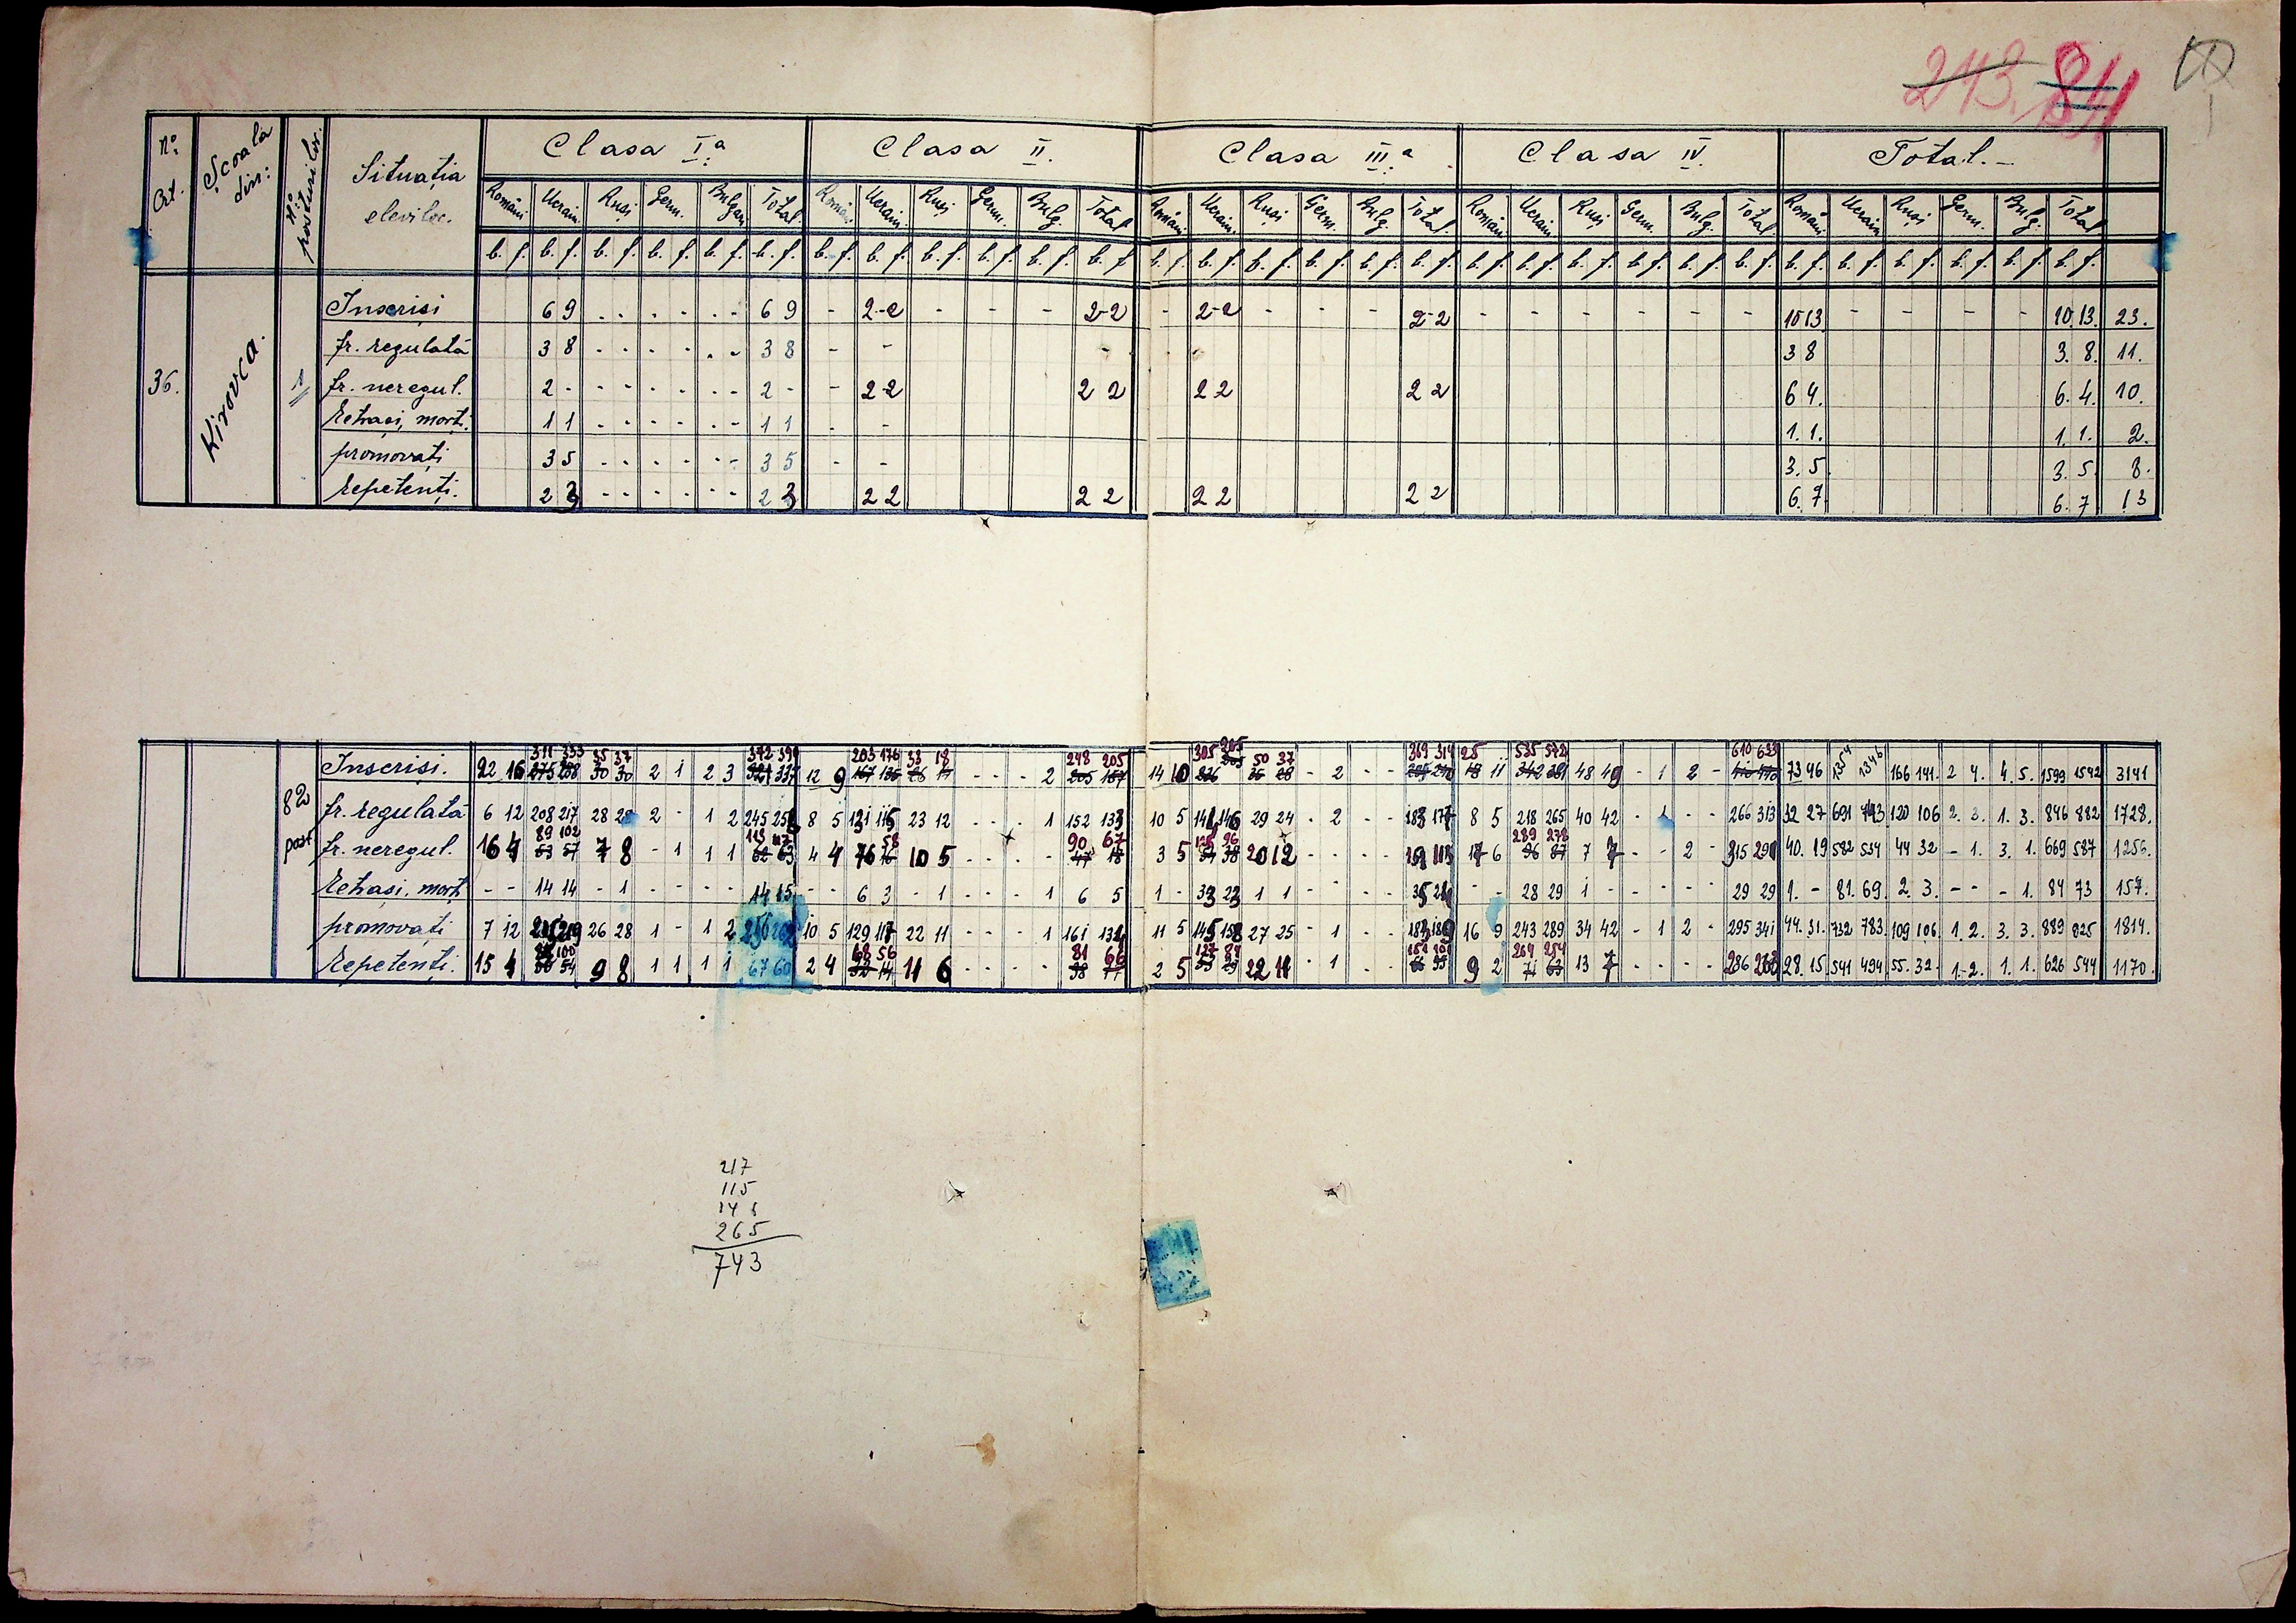 243. 84
No. Crt. Școala din: No. posturilor. Situația elevilor. Clasa I.a Clasa II. Clasa III.a Clasa IV. Total.-
Români Ucrain. Ruși Germ. Bulgari Total. Români Ucrain. Ruși Germ. Bulg. Total Români Ucrain. Ruși Germ. Bulg. Total Români Ucrain Ruși Germ. Bulg. Total Români Ucrain Ruși Germ. Bulg. Total
b. f. b. f. b. f. b. f. b. f. b. f. b. f. b. f. b. f. b. f. b. f. b. f. b. f. b. f. b. f. b. f. b. f. b. f. b. f. b. f. b. f. b. f. b. f. b. f. b. f. b. f. b. f. b. f. b. f. b. f.
36. Kirovca. 1
Inscriși 6 9 6 9 - 2-2 - - - 2-2 - 2-2 - - - 2-2 - - - - - - 10 13 - - - - 10. 13. 23.
fr. regulată 3 8 3 8 - - - 3 8 3. 8. 11.
fr. neregul. 2 - 2 - - 2 2 2 2 2 2 2 2 6 4. 6. 4. 10.
Retrași, morți. 1 1 1 1 - - 1. 1. 1. 1. 2.
promovați 3 5 3 5 - - 3. 5. 3. 5. 8.
Repetenți. 2 3 2 3 2 2 2 2 2 2 2 2 6. 7. 6. 7 13
82 post
311 353 35 37 203 176 33 18 248 205 305 50 37 369 314 25 535 572 610 633
Inscriși. 22 16 275 30 30 2 1 2 3 12 9 167 - - - 2 205 14 10 - 2 - - 11 48 49 - 1 2 - 73 46 1354 1346 166 141. 2 4. 4. 5. 1599 1542 3141
fr. regulată 6 12 208 217 28 28 2 - 1 2 245 8 5 131 115 23 12 - - - 1 152 133 10 5 146 29 24 - 2 - - 183 177 8 5 218 265 40 42 - 1 - - 266 313 32 27 691 743 120 106 2. 3. 1. 3. 846 882 1728.
89 102 58 90 67 96 289 278
fr. neregul. 16 4 63 57 7 8 - 1 1 1 62 63 4 4 76 10 5 - - - - 47 3 5 20 12 - - - - 17 6 96 87 7 7 - - 2 - 315 291 40. 19 582 534 44 32 - 1. 3. 1. 669 587 1256.
Retrași, morți. - - 14 14 - 1 - - - - 14 15 - - 6 3 - 1 - - - 1 6 5 1 - 33 23 1 1 - - - - 35 - - 28 29 1 - - - - - 29 29 1. - 81. 69. 2. 3. - - - 1. 84 73 157.
promovați 7 12 219 26 28 1 - 1 2 10 5 129 117 22 11 - - - 1 161 134 11 5 145 158 27 25 - 1 - - 16 9 243 289 34 42 - 1 2 - 295 341 44. 31. 732 783. 109 106. 1. 2. 3. 3. 889 925 1814.
100 68 56 81 66 264 254
Repetenți. 15 4 54 9 8 1 1 1 1 67 60 2 4 14 11 6 - - - - 38 2 5 22 11 - 1 - - 9 2 71 63 13 7 - - - - 286 28. 15 541 494 55. 32. 1.-2. 1. 1. 626 544 1170.
217
115
265
743